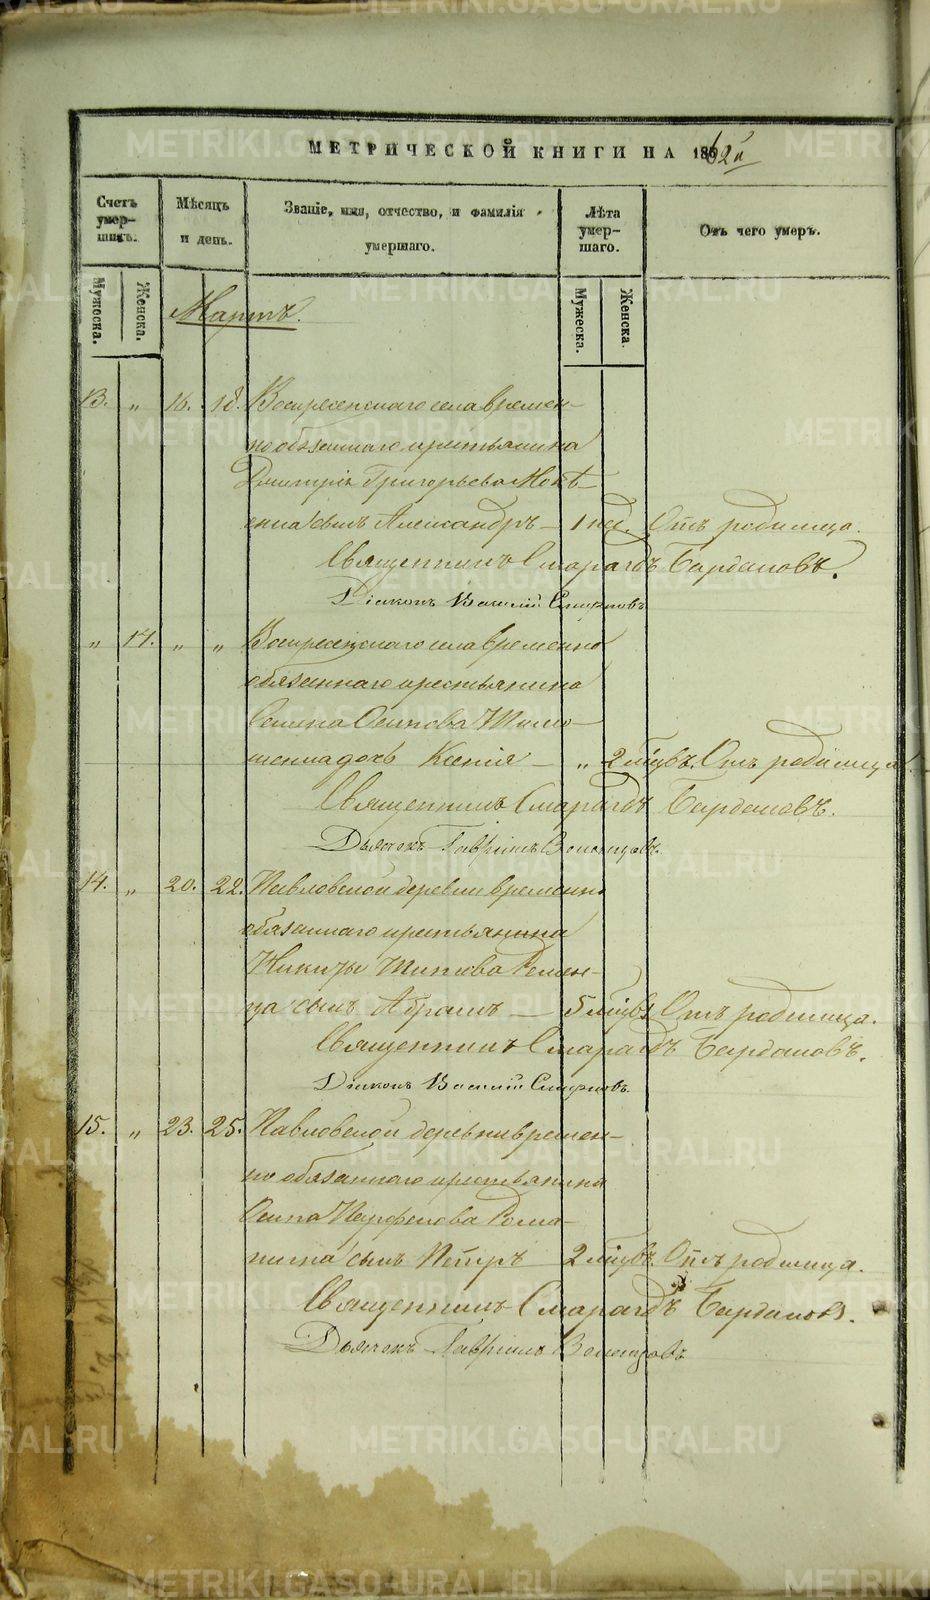 МЕТРИЧЕСКОЙ КНИГИ НА 1862й
Счетъ умер-шихъ.
Мѣсяцъ и день.
Званіе, имя, отчество, и фамилія умершаго.
Лѣта умер-шаго.
Отъ чего умеръ.
Мужеска.
Женска.
Мужеска.
Женска.
Мартъ.
13. „ 16. 18. Воскресенскаго села времен-
но обязаннаго крестьянина
Димитрія Григорьева
сынъ Александръ — 1 нед. Отъ родимца.
Священникъ Смарагдъ Бардановъ.
Діаконъ Василій Смирновъ
„ 14. „ „ Воскресенскаго села временно
обязаннаго крестьянина
Осипова
дочь Ксенія — „ 2 мцвъ. Отъ родимца.
Священникъ Смарагдъ Бардановъ.
Дьячокъ Гавріилъ
14. „ 20. 22. Павловской деревни временно
обязаннаго крестьянина
Никиты Титова
сынъ Абрамъ — 5 мцвъ Отъ родимца.
Священникъ Смарагдъ Бардановъ.
Діаконъ Василій Смирновъ.
15. „ 23. 25. Павловской деревни времен-
но обязаннаго крестьянина
Осипа Парфенова Рома-
нина сынъ Петръ 2 мцвъ. Отъ родимца.
Священникъ Смарагдъ Бардановъ.
Дьячокъ Гавріилъ
METRIKI.GASO-URAL.RU